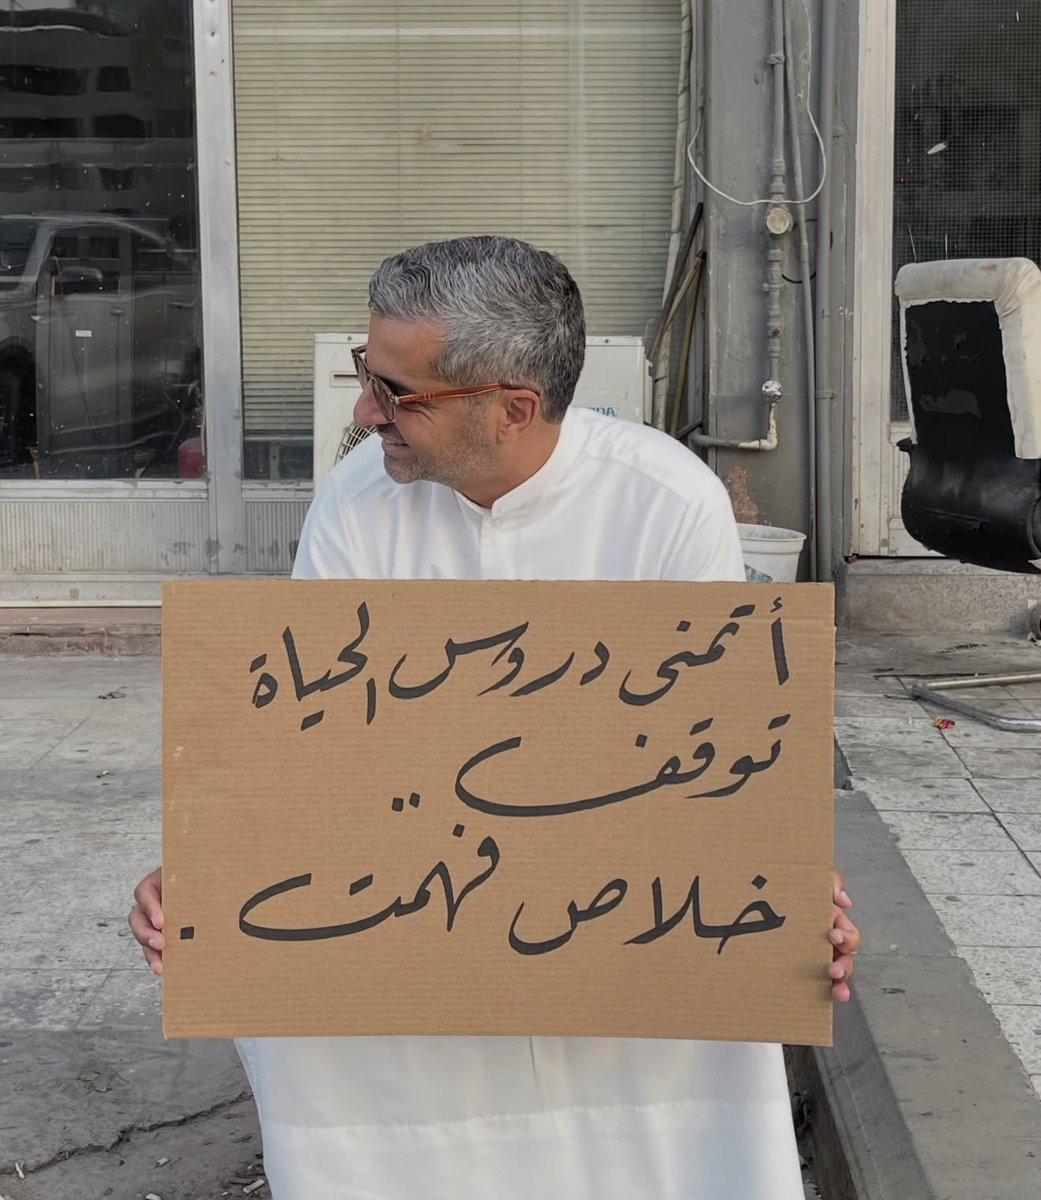 أتمنى دروس الحياة
توقف ..
خلاص فهمت .